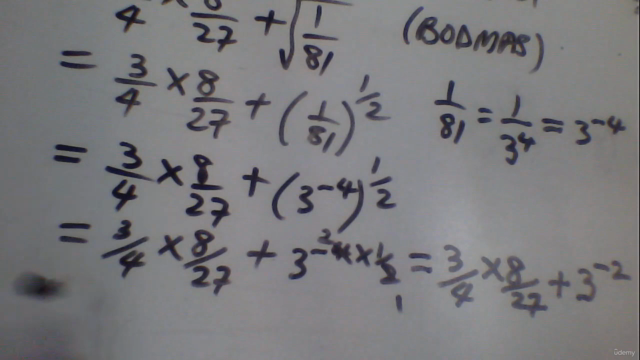 3/4 × 8/27 + √(1/81) (BODMAS)
= 3/4 × 8/27 + (1/81)^(1/2) 1/81 = 1/3^4 = 3^-4
= 3/4 × 8/27 + (3^-4)^(1/2)
= 3/4 × 8/27 + 3^(-4 2 × 1/2 1) = 3/4 × 8/27 + 3^-2
Udemy